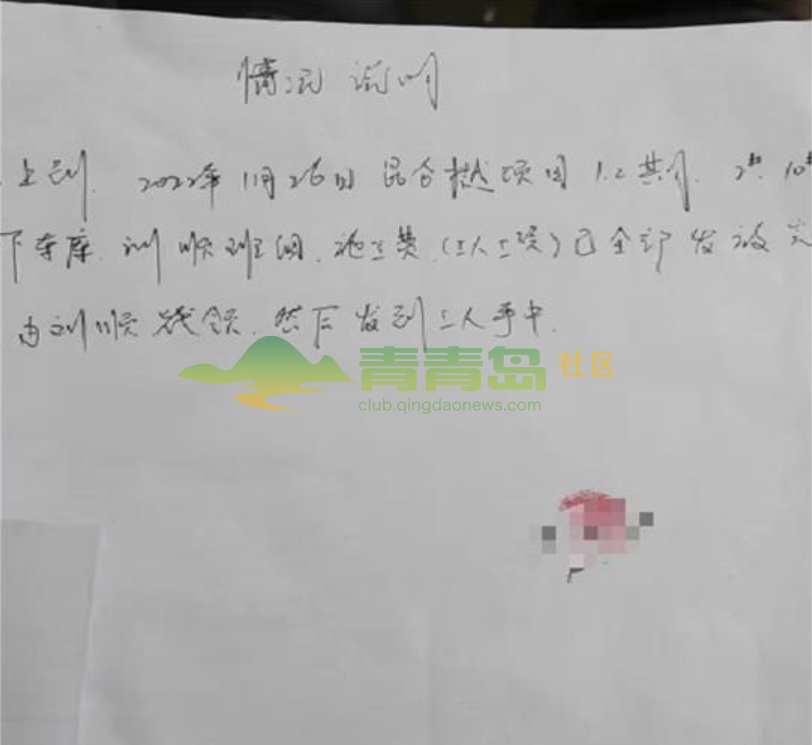 情况说明
上刘. 2022年11月26日 昆仑樾项目1.2共介. 2# 10#
下车库. 刘顺班组. 施工费(工人工资)已全部发放完
由刘顺代领. 然后发到工人手中.
青青岛社区
club.qingdaonews.com